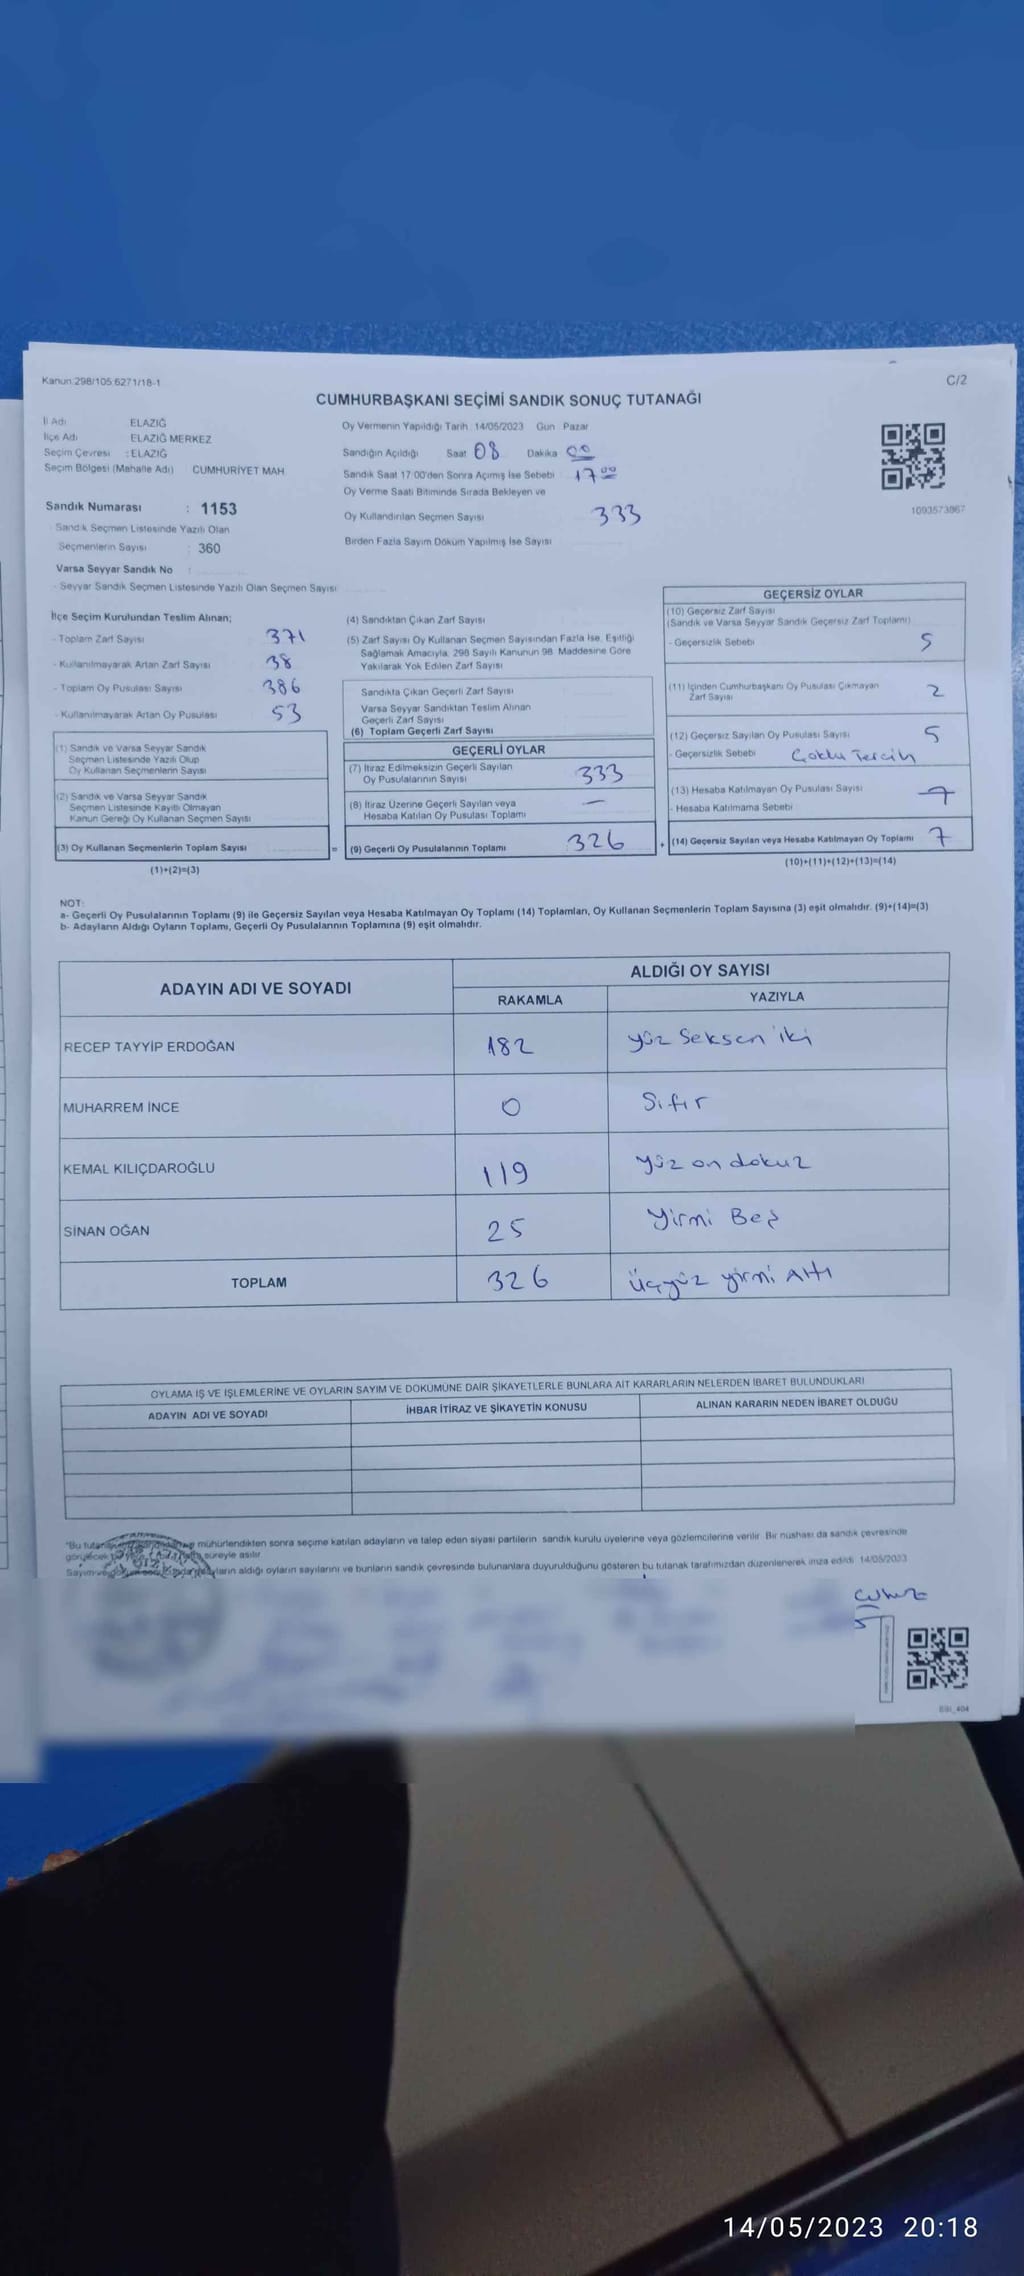 Kanun:298/105.6271/18-1
C/2
CUMHURBAŞKANI SEÇİMİ SANDIK SONUÇ TUTANAĞI
İl Adı ELAZIĞ
İlçe Adı ELAZIĞ MERKEZ
Seçim Çevresi :ELAZIĞ
Seçim Bölgesi (Mahalle Adı) CUMHURİYET MAH.
Sandık Numarası : 1153
- Sandık Seçmen Listesinde Yazılı Olan
Seçmenlerin Sayısı : 360
Varsa Seyyar Sandık No :
- Seyyar Sandık Seçmen Listesinde Yazılı Olan Seçmen Sayısı
Oy Vermenin Yapıldığı Tarih :14/05/2023 Gün Pazar
Sandığın Açıldığı Saat 08 Dakika 00
Sandık Saat 17:00'den Sonra Açımış İse Sebebi 17 00
Oy Verme Saati Bitiminde Sırada Bekleyen ve
Oy Kullandırılan Seçmen Sayısı 333
Birden Fazla Sayım Döküm Yapılmış İse Sayısı
1093573867
İlçe Seçim Kurulundan Teslim Alınan;
- Toplam Zarf Sayısı 371
- Kullanılmayarak Artan Zarf Sayısı 38
- Toplam Oy Pusulası Sayısı 386
- Kullanılmayarak Artan Oy Pusulası 53
(1) Sandık ve Varsa Seyyar Sandık
Seçmen Listesinde Yazılı Olup
Oy Kullanan Seçmenlerin Sayısı
(2) Sandık ve Varsa Seyyar Sandık
Seçmen Listesinde Kayıtlı Olmayan
Kanun Gereği Oy Kullanan Seçmen Sayısı
(3) Oy Kullanan Seçmenlerin Toplam Sayısı =
(1)+(2)=(3)
(4) Sandıktan Çıkan Zarf Sayısı
(5) Zarf Sayısı Oy Kullanan Seçmen Sayısından Fazla İse, Eşitliği
Sağlamak Amacıyla, 298 Sayılı Kanunun 98. Maddesine Göre
Yakılarak Yok Edilen Zarf Sayısı
Sandıkta Çıkan Geçerli Zarf Sayısı
Varsa Seyyar Sandıktan Teslim Alınan
Geçerli Zarf Sayısı
(6) Toplam Geçerli Zarf Sayısı
GEÇERLİ OYLAR
(7) İtiraz Edilmeksizin Geçerli Sayılan
Oy Pusulalarının Sayısı 333
(8) İtiraz Üzerine Geçerli Sayılan veya
Hesaba Katılan Oy Pusulası Toplamı —
(9) Geçerli Oy Pusulalarının Toplamı 326 +
GEÇERSİZ OYLAR
(10) Geçersiz Zarf Sayısı
(Sandık ve Varsa Seyyar Sandık Geçersiz Zarf Toplamı)
- Geçersizlik Sebebi 5
(11) İçinden Cumhurbaşkanı Oy Pusulası Çıkmayan
Zarf Sayısı 2
(12) Geçersiz Sayılan Oy Pusulası Sayısı 5
- Geçersizlik Sebebi Çoklu Tercih
(13) Hesaba Katılmayan Oy Pusulası Sayısı 7
- Hesaba Katılmama Sebebi
(14) Geçersiz Sayılan veya Hesaba Katılmayan Oy Toplamı 7
(10)+(11)+(12)+(13)=(14)
NOT:
a- Geçerli Oy Pusulalarının Toplamı (9) ile Geçersiz Sayılan veya Hesaba Katılmayan Oy Toplamı (14) Toplamları, Oy Kullanan Seçmenlerin Toplam Sayısına (3) eşit olmalıdır. (9)+(14)=(3)
b- Adayların Aldığı Oyların Toplamı, Geçerli Oy Pusulalarının Toplamına (9) eşit olmalıdır.
ADAYIN ADI VE SOYADI
ALDIĞI OY SAYISI
RAKAMLA YAZIYLA
RECEP TAYYİP ERDOĞAN 182 yüz Seksen iki
MUHARREM İNCE 0 Sıfır
KEMAL KILIÇDAROĞLU 119 yüz on dokuz
SİNAN OĞAN 25 Yirmi Beş
TOPLAM 326 üçyüz yirmi Altı
OYLAMA İŞ VE İŞLEMLERİNE VE OYLARIN SAYIM VE DÖKÜMÜNE DAİR ŞİKAYETLERLE BUNLARA AİT KARARLARIN NELERDEN İBARET BULUNDUKLARI
ADAYIN ADI VE SOYADI İHBAR İTİRAZ VE ŞİKAYETİN KONUSU ALINAN KARARIN NEDEN İBARET OLDUĞU
"Bu mühürlendikten sonra seçime katılan adayların ve talep eden siyasi partilerin sandık kurulu üyelerine veya gözlemcilerine verilir. Bir nüshası da sandık çevresinde
süreyle asılır.
aldığı oyların sayılarını ve bunların sandık çevresinde bulunanlara duyurulduğunu gösteren bu tutanak tarafımızdan düzenlenerek imza edildi. 14/05/2023
14/05/2023 20:18